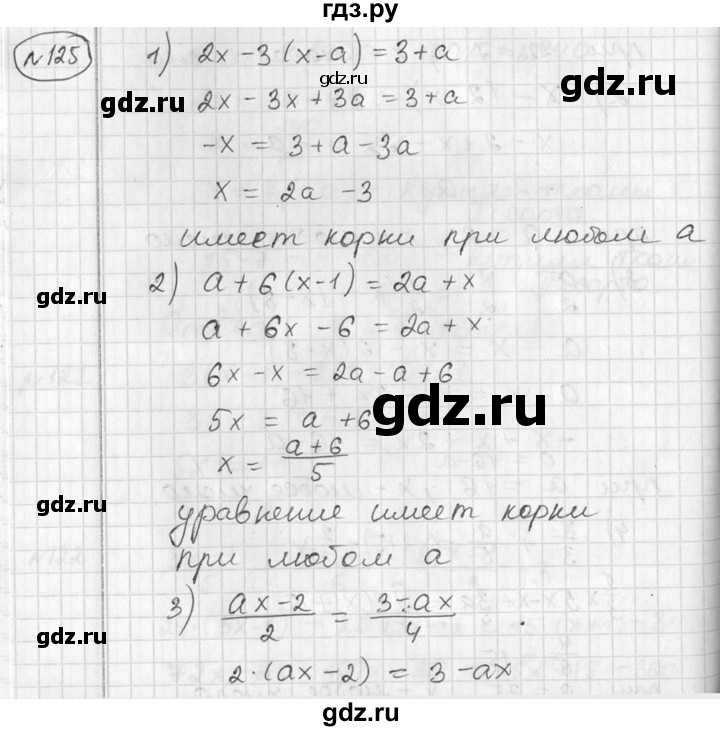 гдз.ру
№125
1) 2x - 3(x-a) = 3+a
gdz.ru
gdz.ru
gdz.ru
2x - 3x + 3a = 3+a
-x = 3+a-3a
x = 2a - 3
имеет корни при любом a
2) a + 6(x-1) = 2a + x
gdz.ru
a + 6x - 6 = 2a + x
6x - x = 2a - a + 6
5x = a + 6
gdz.ru
x = (a+6)/5
gdz.ru
уравнение имеет корни
при любом a
3) (ax-2)/2 = (3-ax)/4
gdz.ru
gdz.ru
2·(ax-2) = 3-ax
gdz.ru